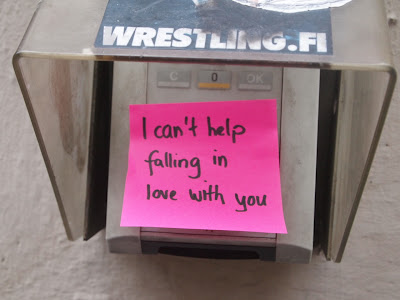 WRESTLING.FI
C 0 OK
I can't help
falling in
love with you